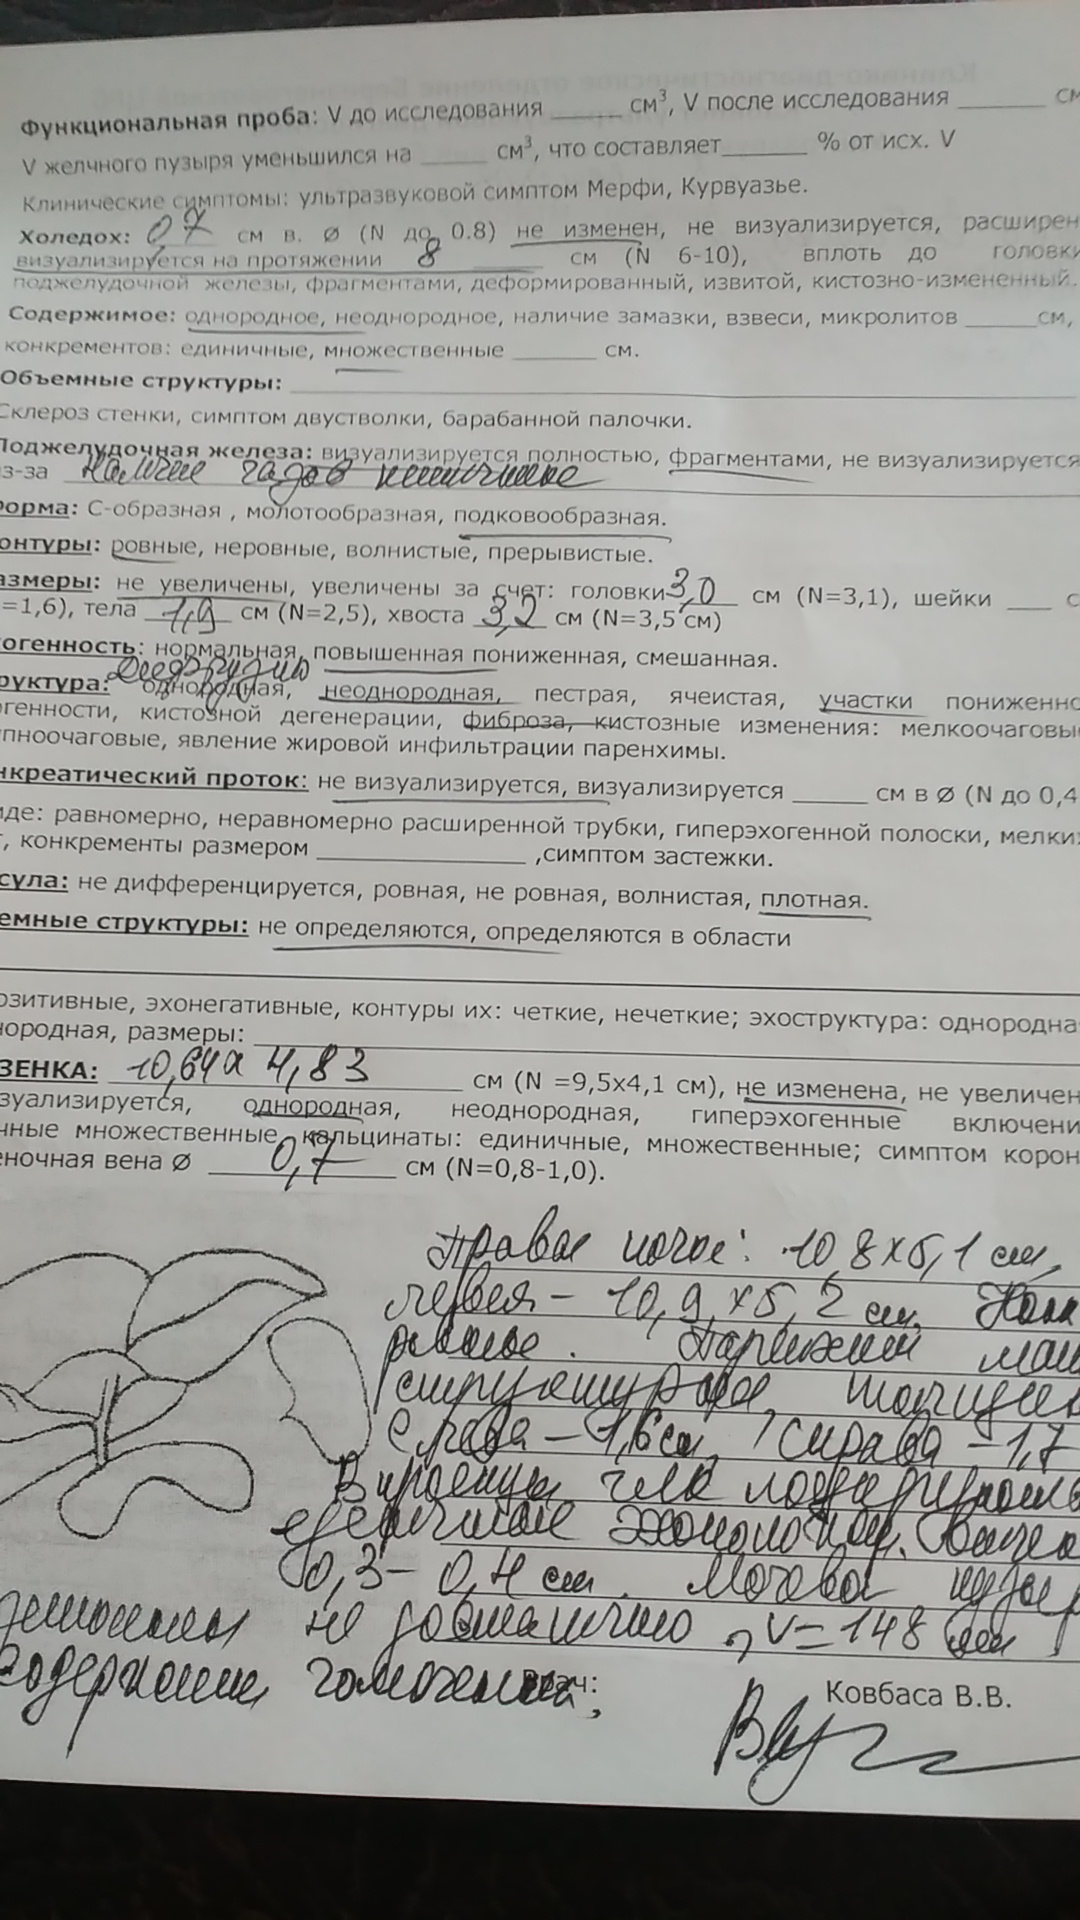 Функциональная проба: V до исследования ______ см³, V после исследования ______ см
V желчного пузыря уменьшился на _____ см³, что составляет ______ % от исх. V
Клинические симптомы: ультразвуковой симптом Мерфи, Курвуазье.
Холедох: 0,7 см в. ø (N до 0.8) не изменен, не визуализируется, расширен
визуализируется на протяжении 8 см (N 6-10), вплоть до головки
поджелудочной железы, фрагментами, деформированный, извитой, кистозно-измененный.
Содержимое: однородное, неоднородное, наличие замазки, взвеси, микролитов _____см,
конкрементов: единичные, множественные ______ см.
Объемные структуры:
Склероз стенки, симптом двустволки, барабанной палочки.
Поджелудочная железа: визуализируется полностью, фрагментами, не визуализируется
из-за наличие газов кишечнике
форма: С-образная , молотообразная, подковообразная.
онтуры: ровные, неровные, волнистые, прерывистые.
азмеры: не увеличены, увеличены за счет: головки 3,0 см (N=3,1), шейки ___ с
=1,6), тела 1,9 см (N=2,5), хвоста 3,2 см (N=3,5 см)
огенность: нормальная, повышенная пониженная, смешанная.
диффузно
руктура: однородная, неоднородная, пестрая, ячеистая, участки пониженно
огенности, кистозной дегенерации, фиброза, кистозные изменения: мелкоочаговые
упноочаговые, явление жировой инфильтрации паренхимы.
нкреатический проток: не визуализируется, визуализируется _____ см в ø (N до 0,4
иде: равномерно, неравномерно расширенной трубки, гиперэхогенной полоски, мелких
, конкременты размером ______________ ,симптом застежки.
сула: не дифференцируется, ровная, не ровная, волнистая, плотная.
емные структуры: не определяются, определяются в области
озитивные, эхонегативные, контуры их: четкие, нечеткие; эхоструктура: однородная
нородная, размеры:
ЗЕНКА: 10,64 х 4,83 см (N =9,5х4,1 см), не изменена, не увеличен
зуализируется, однородная, неоднородная, гиперэхогенные включени
чные множественные, кальцинаты: единичные, множественные; симптом корон
еночная вена ø 0,7 см (N=0,8-1,0).
Правая почка: 10,8х5,1 см,
левая – 10,9 х 5,2 см.
ровные. Паренхима
структурная, толщина
слева – 1,6 см, справа – 1,7
В проекции чмк
единичные эхополож. включ
0,3 – 0,4 см. Мочевой пузыр
не достаточно, V = 148 мл
содержимое гомогенное,
врач: Ковбаса В.В.